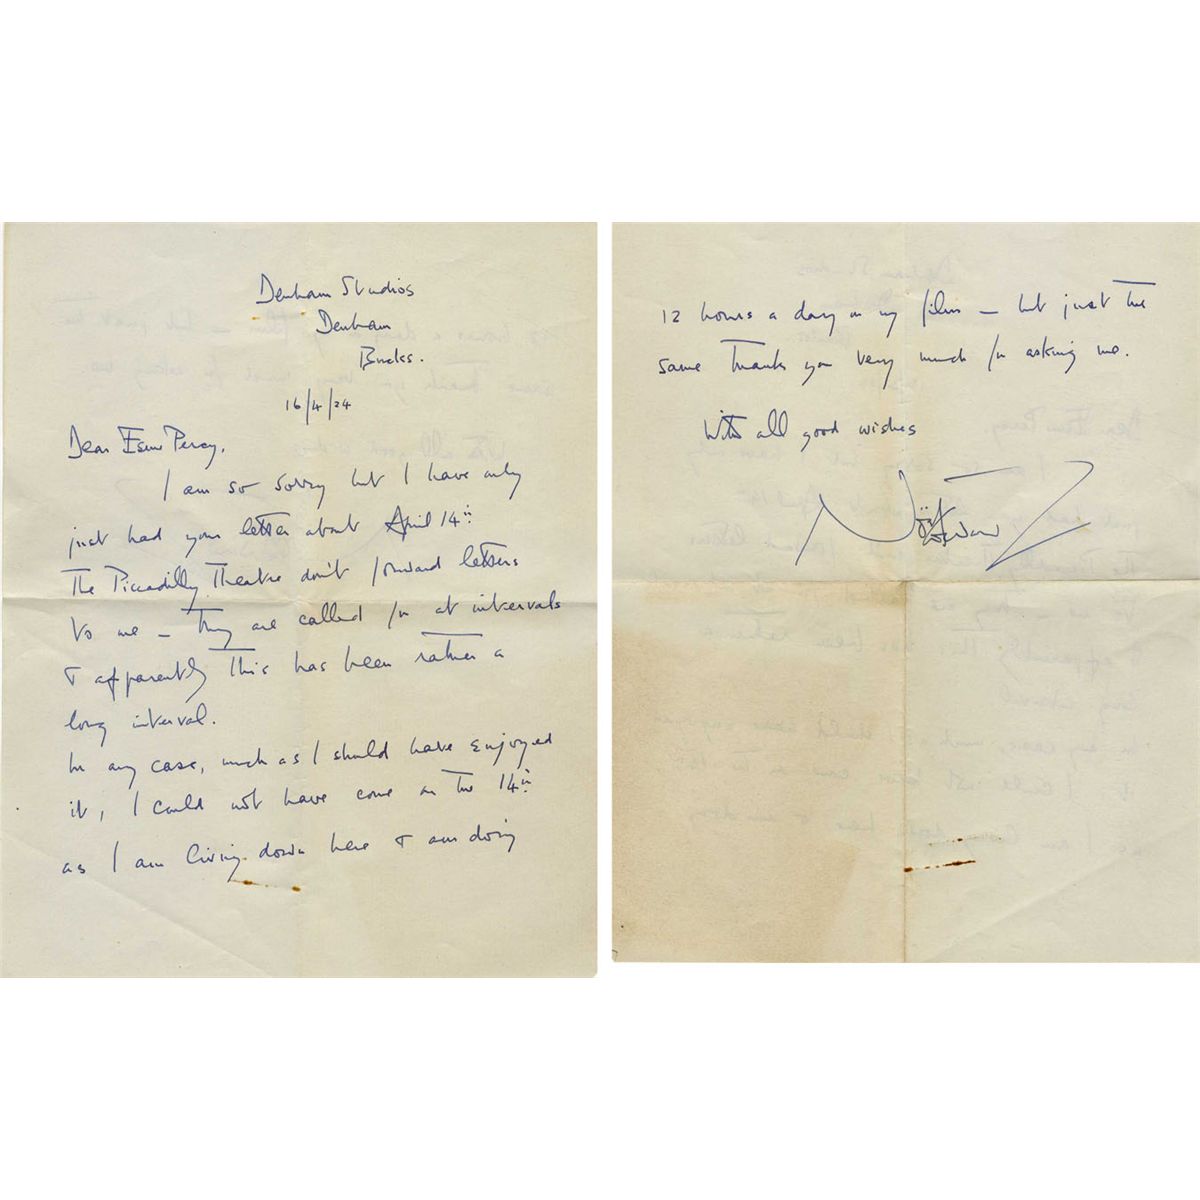 Denham Studios
Denham
Bucks.
16/4/24
Dear Esme Percy,
I am so sorry but I have only
just had your letter about April 14th
The Piccadilly Theatre don't forward letters
to me – They are called for at intervals
& apparently this has been rather a
long interval.
In any case, much as I should have enjoyed
it, I could not have come on the 14th
as I am living down here & am doing
12 hours a day on my film – but just the
same thank you very much for asking me.
With all good wishes
Noël Coward